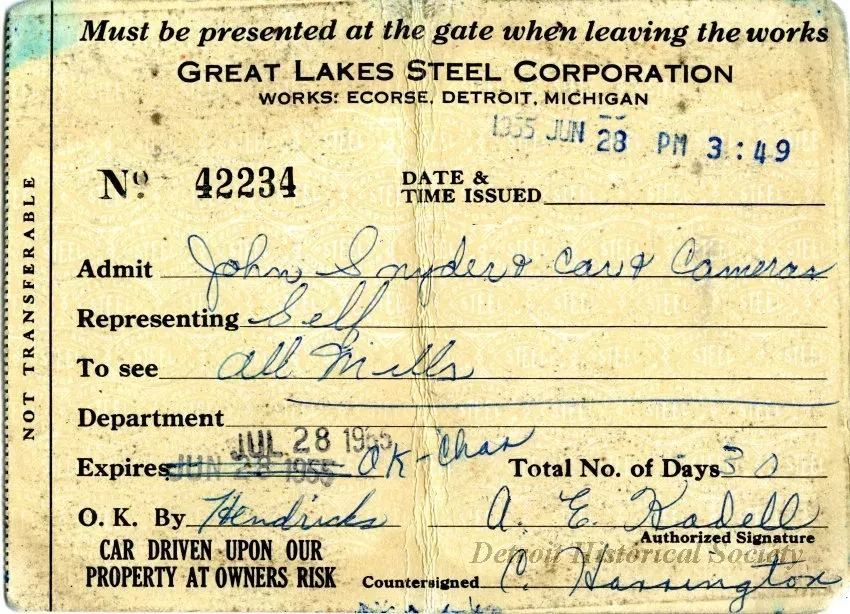 Must be presented at the gate when leaving the works
GREAT LAKES STEEL CORPORATION
WORKS: ECORSE, DETROIT, MICHIGAN
1955 JUN 28 PM 3:49
No 42234 DATE & TIME ISSUED
Admit John Snyder & car & Cameras
Representing Self
To see all Mills
Department
JUL 28 1955
Expires JUN 28 1955 OK-Chas Total No. of Days 30
O. K. By Hendricks A. E. Kadell
Authorized Signature
CAR DRIVEN UPON OUR
PROPERTY AT OWNERS RISK
Countersigned C. Harrington
NOT TRANSFERABLE
Detroit Historical Society